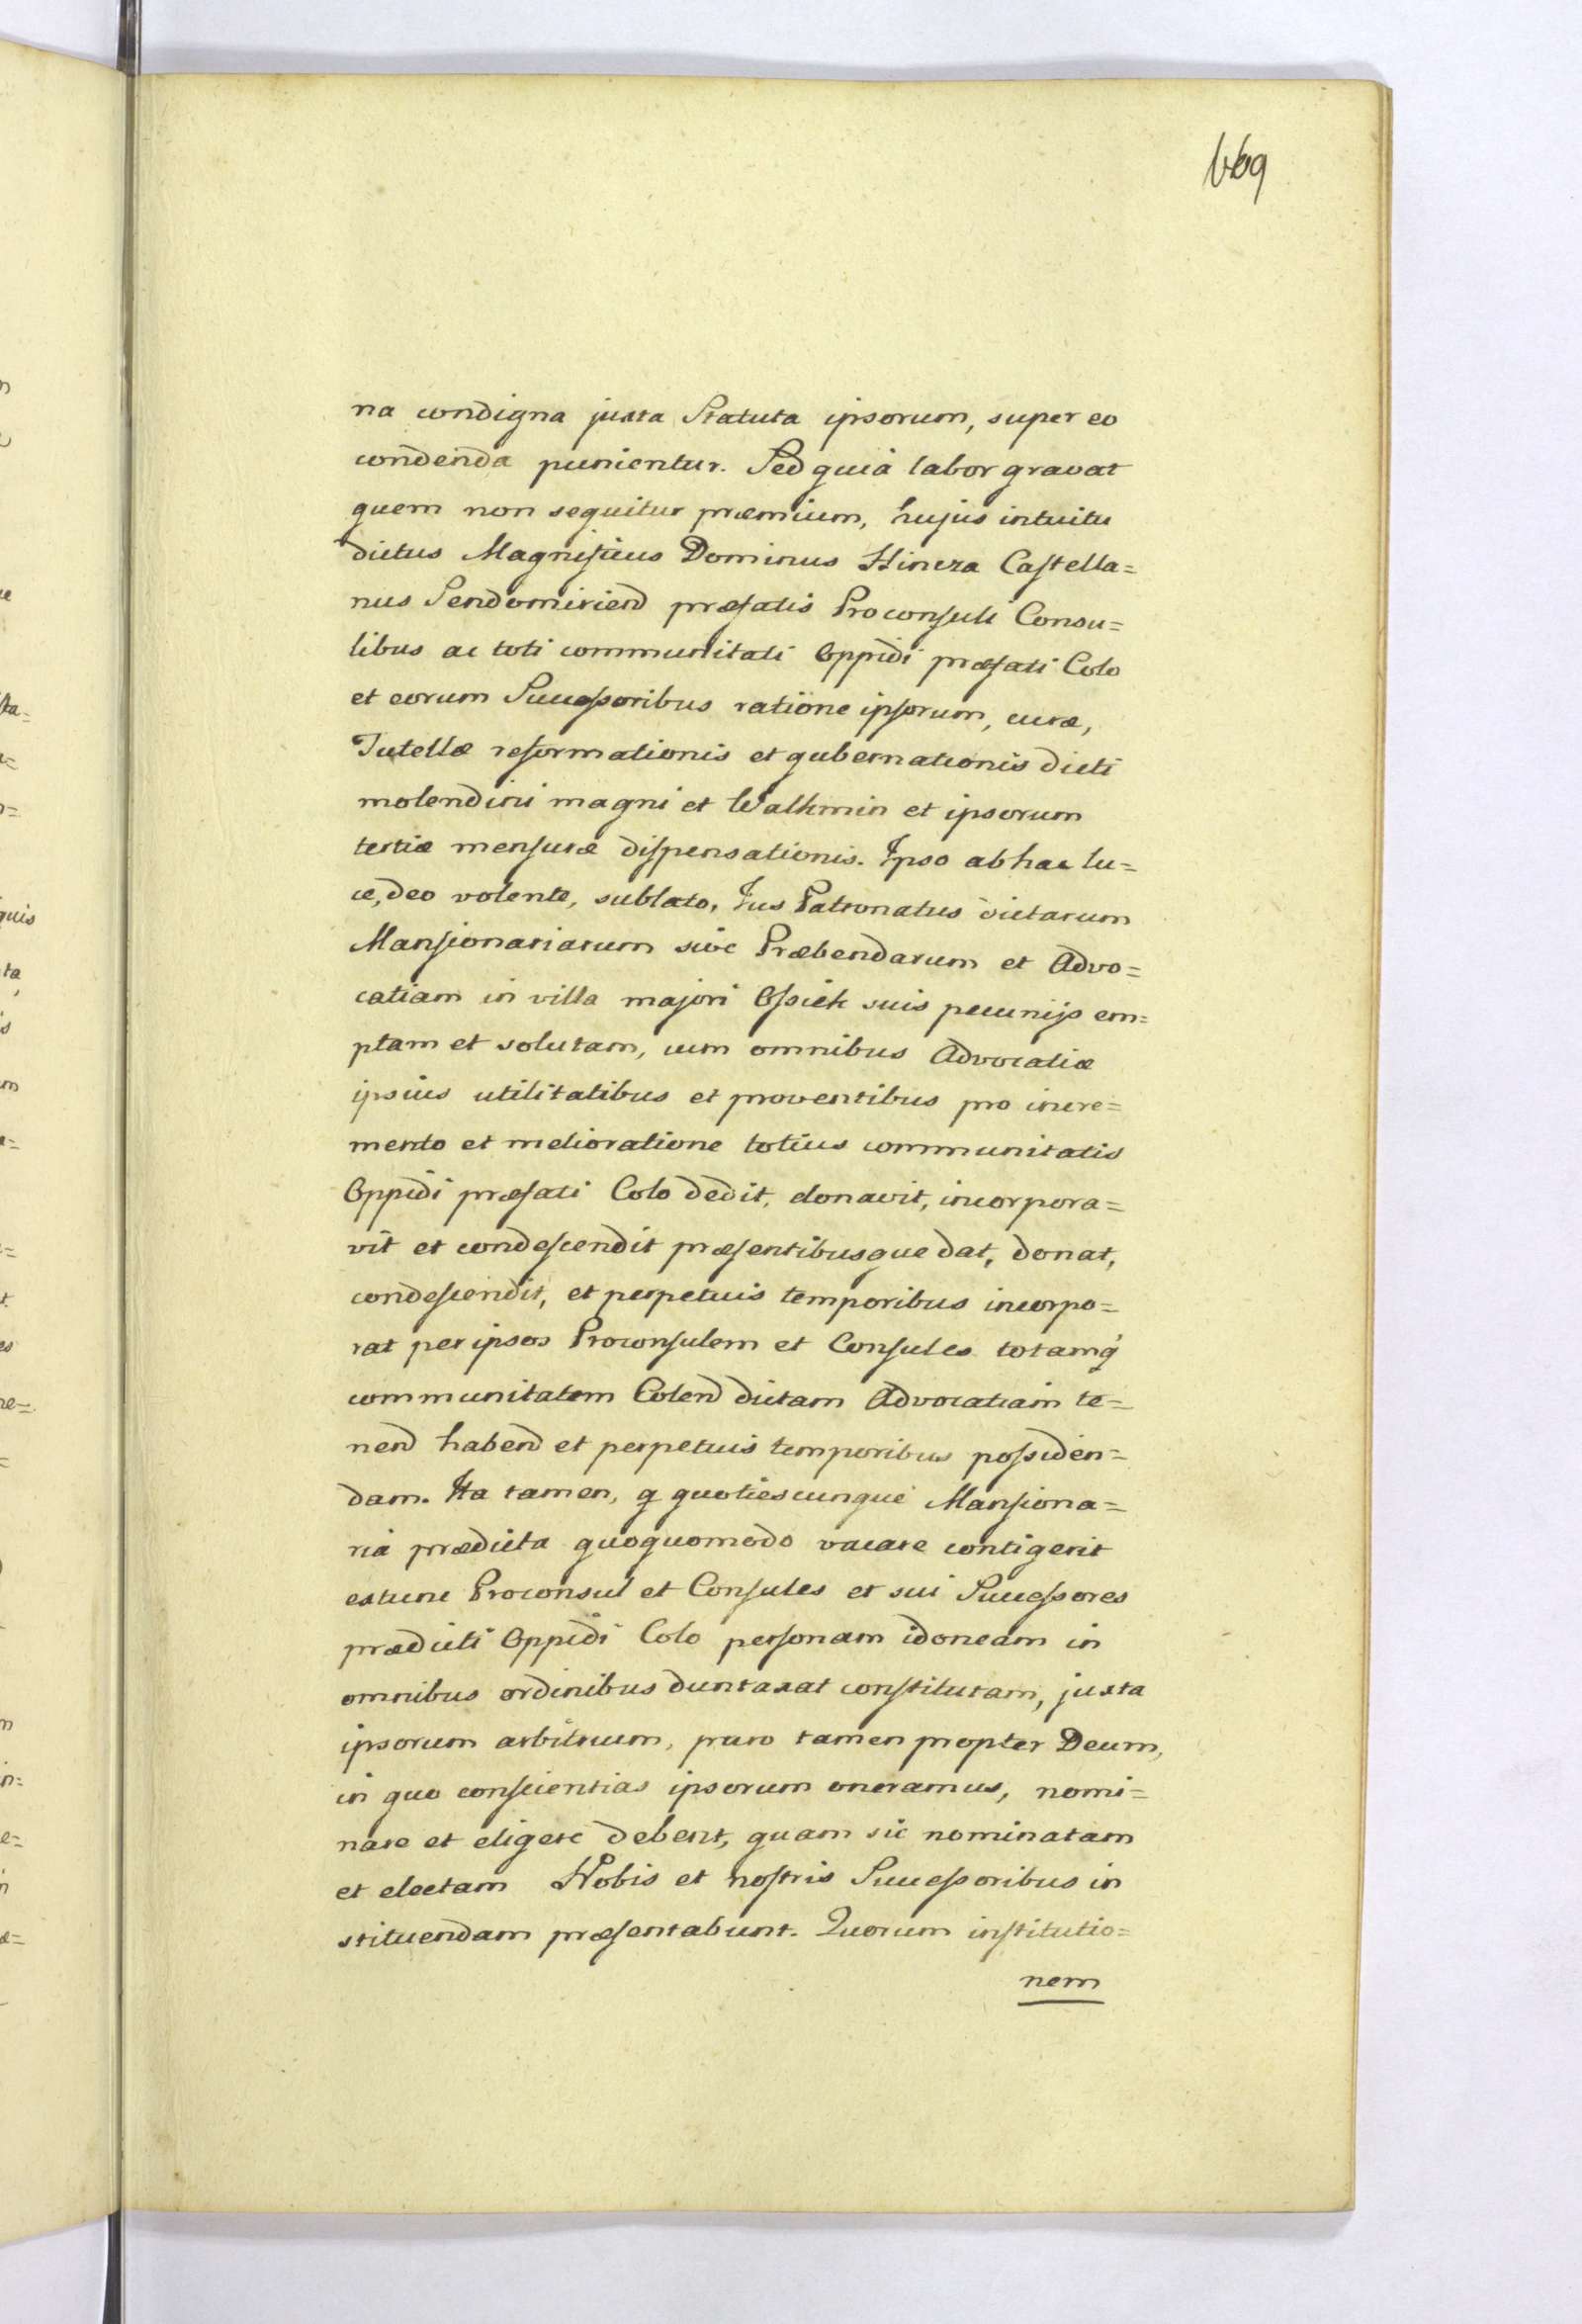 669
na condigna juxta Statuta ipsorum, super eo
condenda punientur. Sed quia labor gravat
quem non sequitur præmium, hujus intuitu
dictus Magnificus Dominus Hincza Castella=
nus Sendomiriend præfatis Proconsuli Consu=
libus ac toti communitati Oppidi præfati Colo
et eorum Successoribus ratione ipsorum, curæ,
Tutellæ reformationis et gubernationis dicti
molendini magni et Walkmin et ipsorum
tertiæ mensuræ dispensationis. Ipso ab hac lu=
ce, deo volente, sublato, Jus Patronatus dictarum
Mansionariarum sive Præbendarum et Advo=
catiam in villa majori Ossiek suis pecunijs em=
ptam et solutam, cum omnibus Advocatiæ
ipsius utilitatibus et proventibus pro incre=
mento et melioratione totius communitatis
Oppidi præfati Colo dedit, donavit, incorpora=
vit et condescendit præsentibusque dat, donat,
condescendit, et perpetuis temporibus incorpo=
rat per ipsos Proconsulem et Consules totamq
communitatem Colend dictam Advocatiam te=
nend habend et perpetuis temporibus possiden=
dam. Ita tamen, q quotiescunque Mansiona=
ria prædicta quoquomodo vacare contigerit
extunc Proconsul et Consules et sui Successores
prædicti Oppidi Colo personam idoneam in
omnibus ordinibus duntaxat constitutam, juxta
ipsorum arbitrium, puro tamen propter Deum,
in quo conscientias ipsorum oneramus, nomi=
nare et eligere debent, quam sic nominatam
et electam Nobis et nostris Successoribus in
stituendam præsentabunt. Quorum institutio=
nem